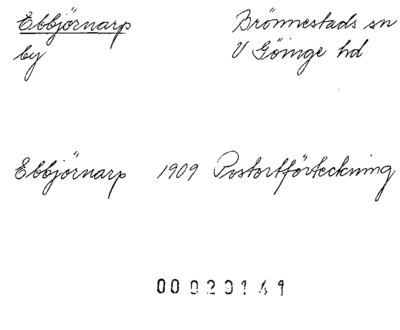 Ebbjörnarp Brönnestads sn
by V Göinge hd
Ebbjörnarp 1909 Postortförteckning